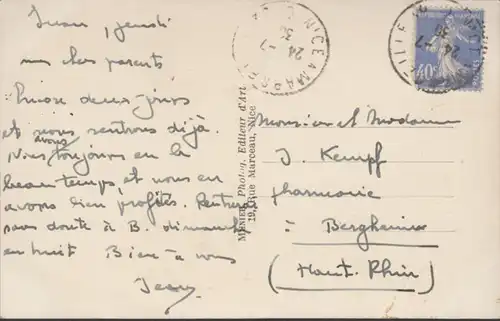 jeudi
mes chers parents
deux jours
et nous rentrons déjà.
Nous avons toujours eu le
beau temps, et nous en
avons bien profité. Rentrerai
sans doute à B. dimanche
en huit Bien à vous
Jean
MENIER, Photog. Editeur d'Art
19, Rue Marceau, Nice
NICE A MARSEILLE
24-7
POSTES
40c
24-7
Monsieur et Madame
J. Kempf
pharmacie
à Bergheim
(Haut-Rhin)